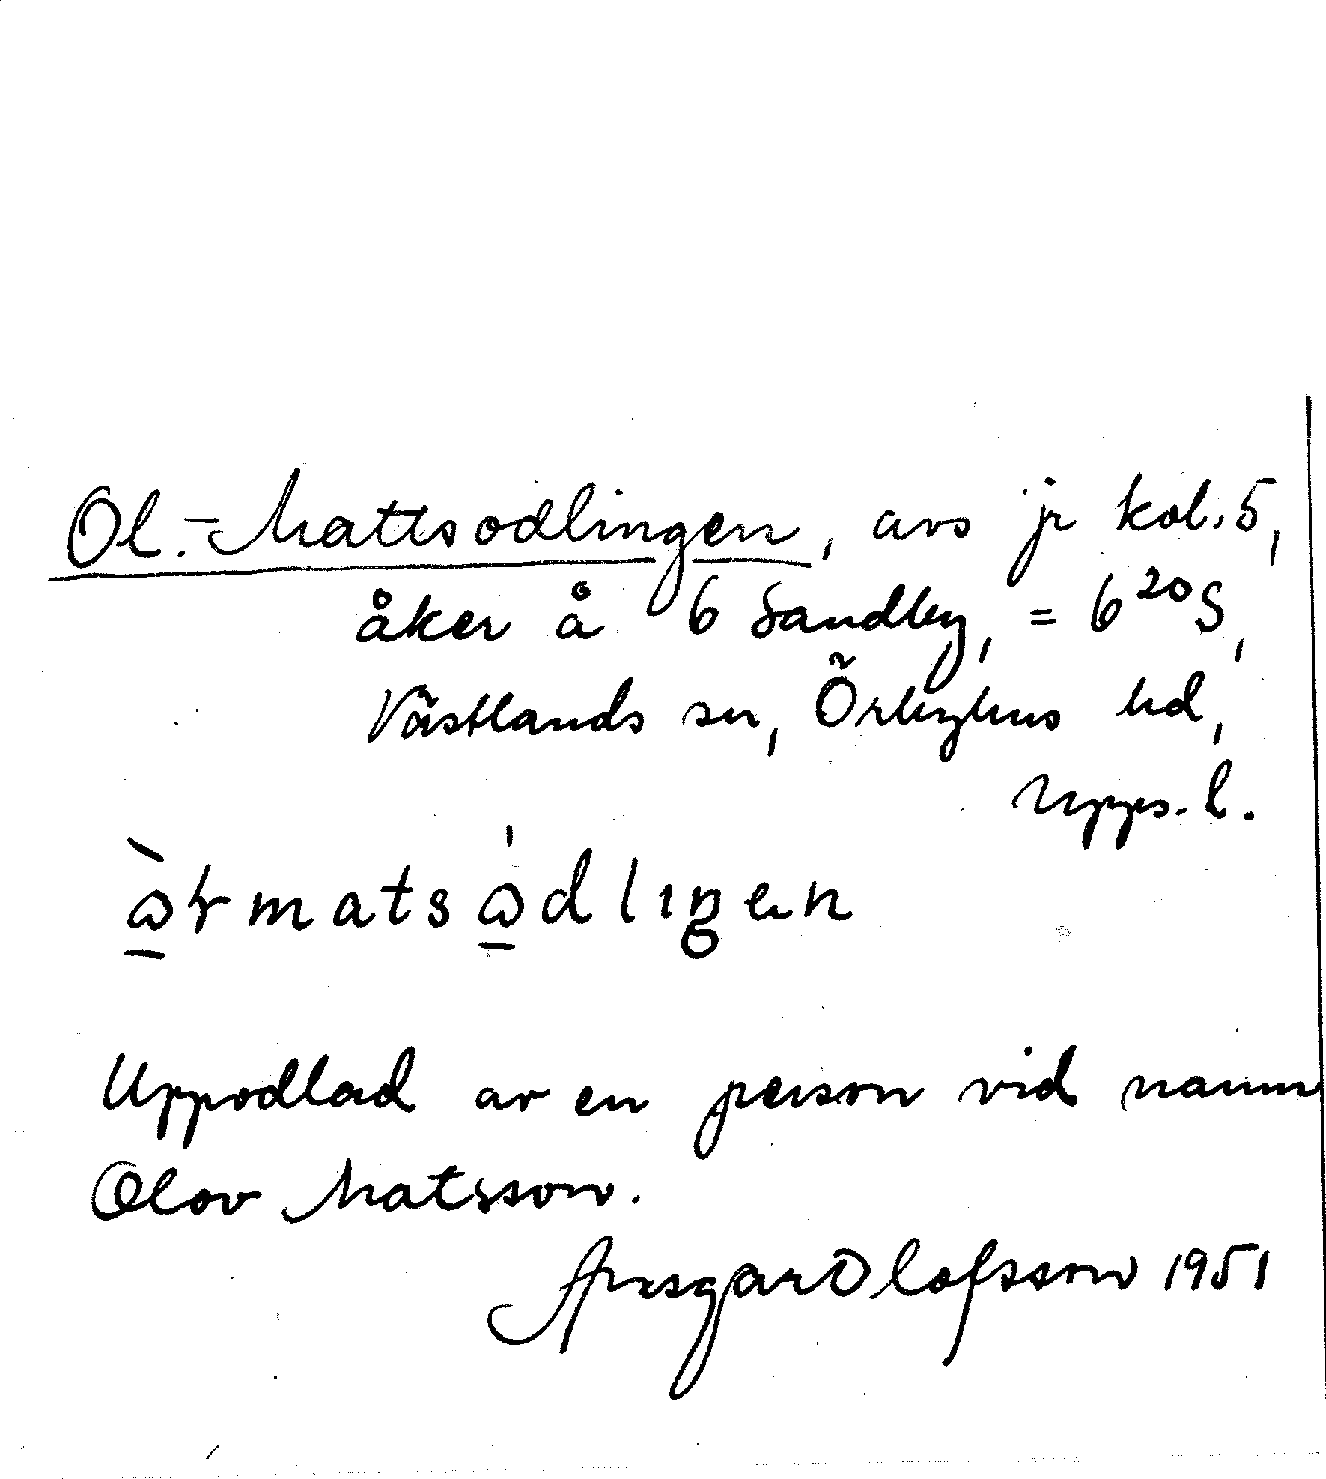 Ol.-Mattsodlingen, avs jr kol. 5,
åker å 6 Sandby, = 6²⁰S,
Västlands sn, Örbyhus hd,
Upps. l.
Uppodlad av en person vid namn
Olov Matsson.
Ansgar Olofsson 1951